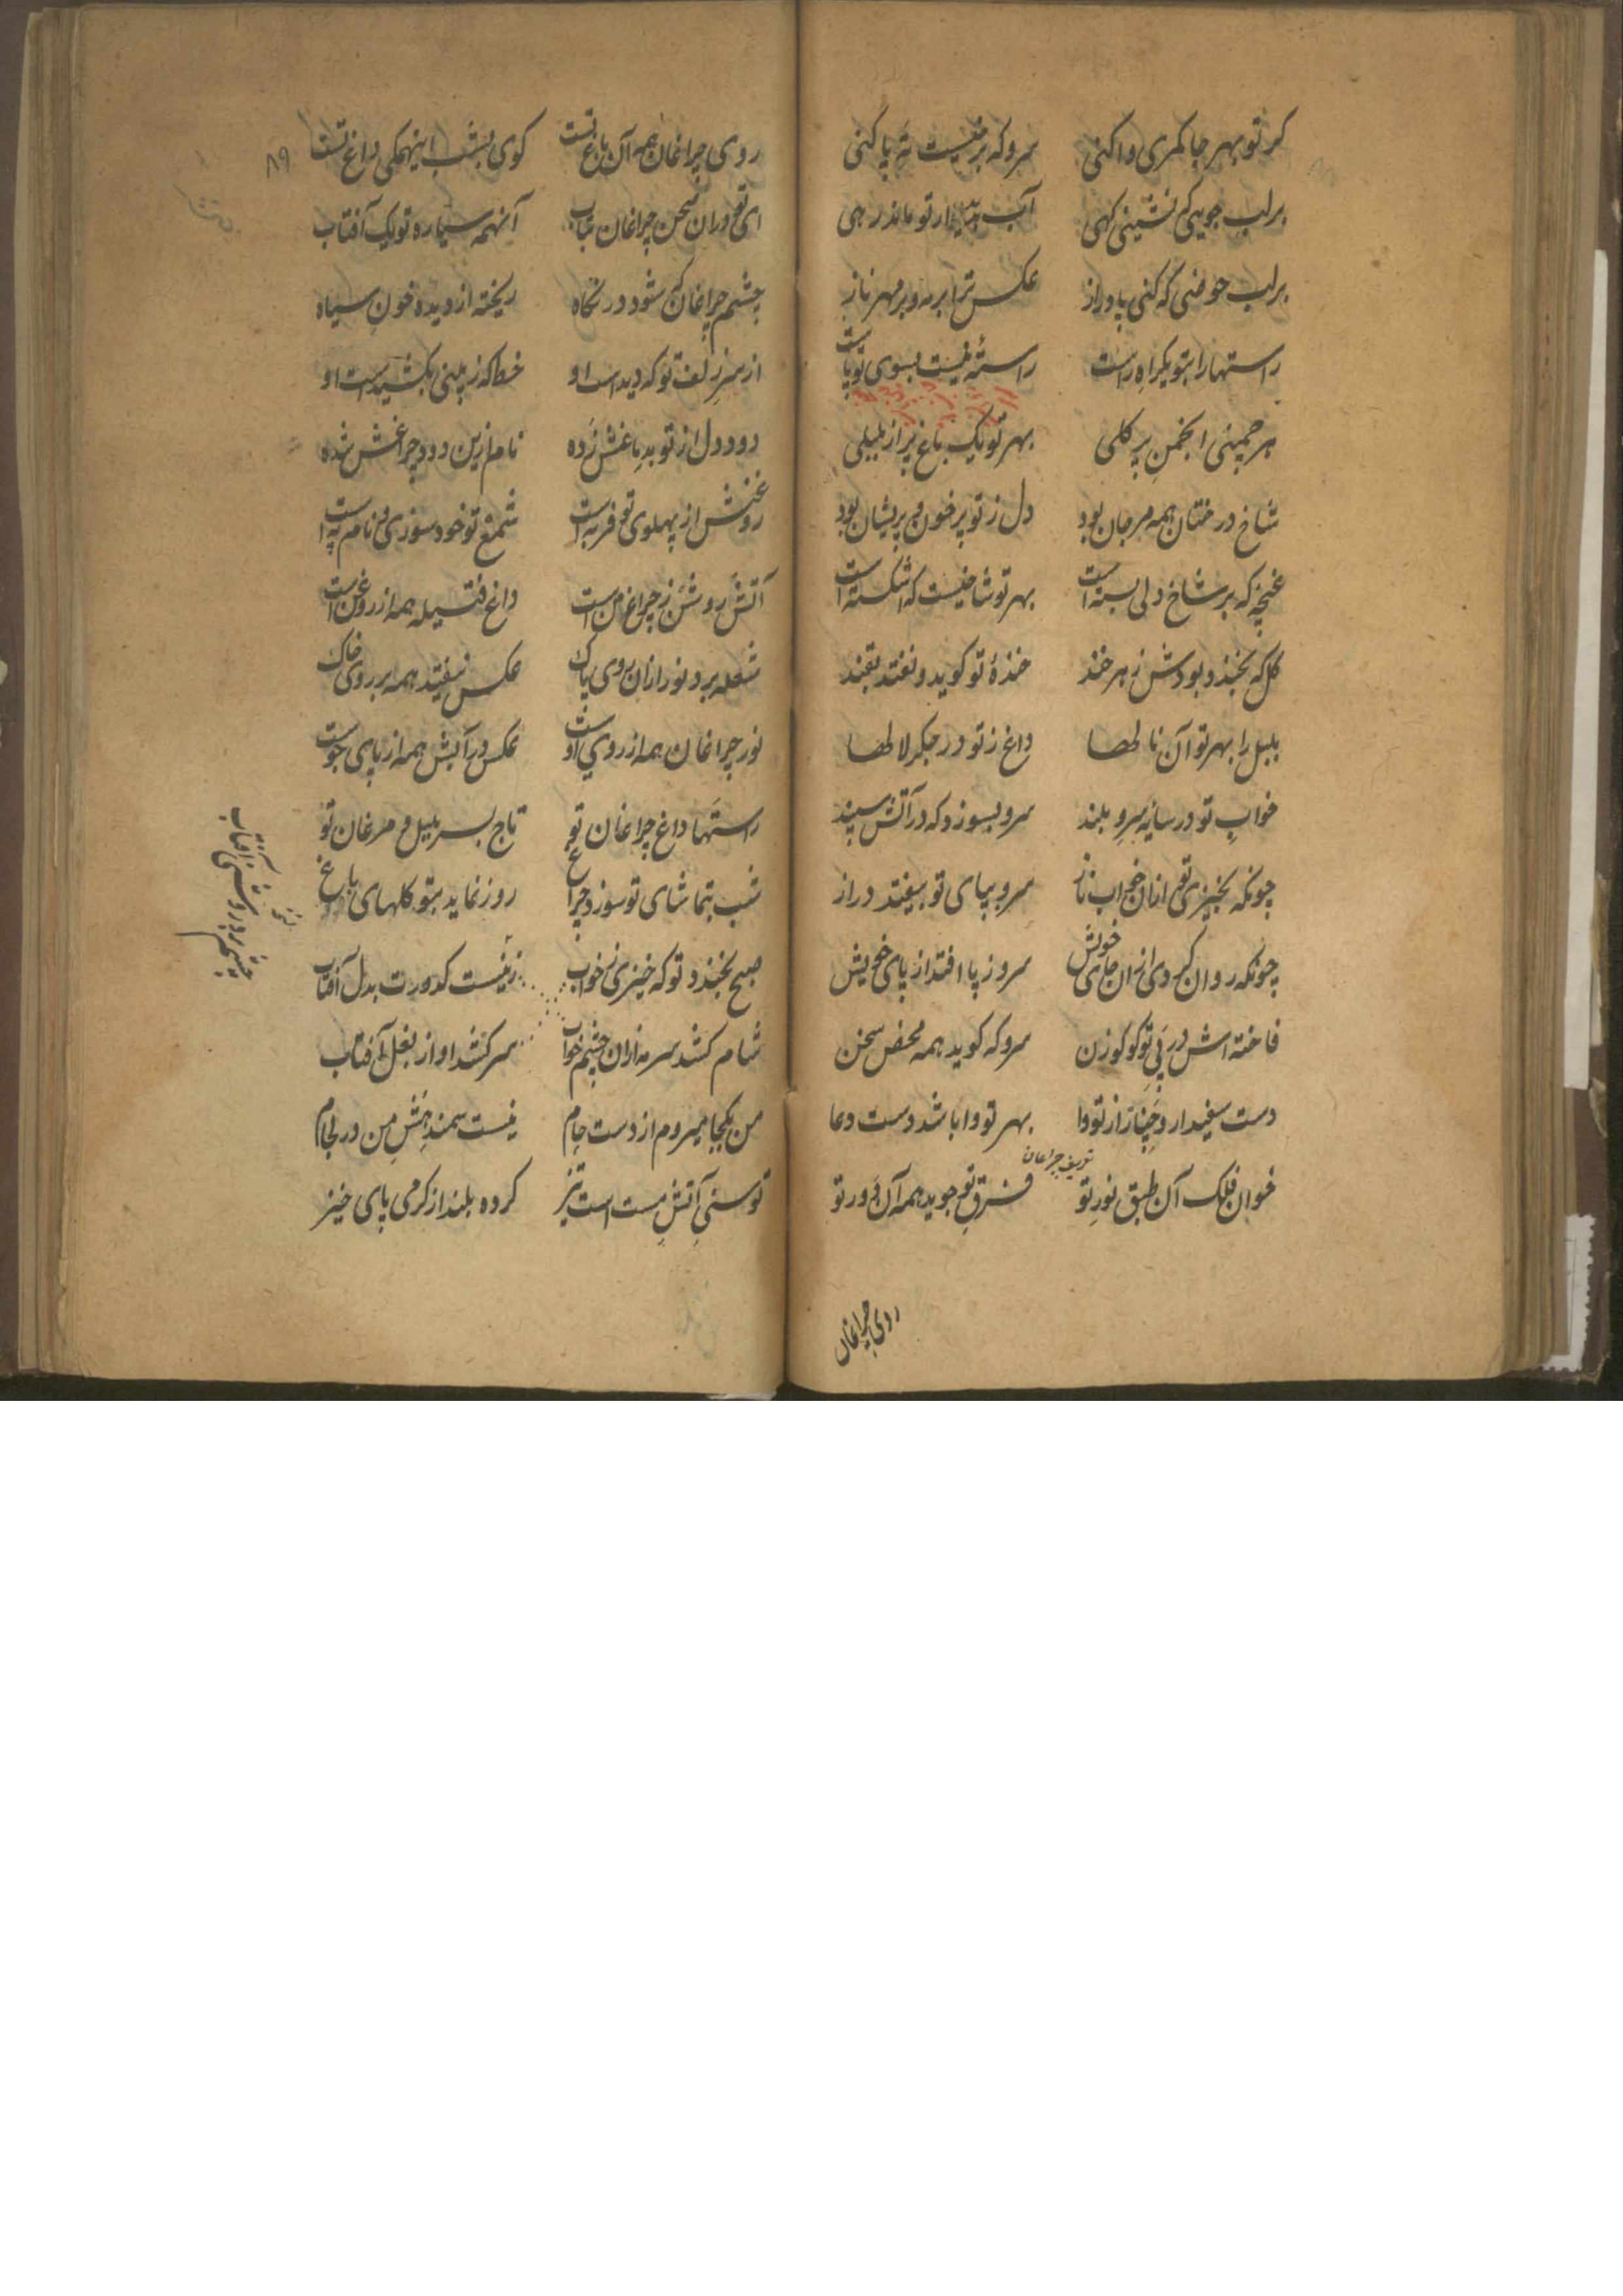 کر تو بهر جا کمری وا کنی
سرو که بر نیست ته پا کنی
بر لب جویی که نشینی کهی
آب بدیدار تو ماند رهی
بر لب حوضی که کنی پا دراز
عکس ترا بر مه و بر مهر ناز
راستها را بتو یکراه راست
راسته نیست بسوی تو پاست
هر چمنی انجمن پر کلی
بهر تو یک باغ پر از بلبلی
شاخ درختان همه مرجان بود
دل ز تو پر خون و پریشان بود
غنچه که بر شاخ دلی بسته است
بهر تو شاخیست که اشکسته است
کل که بخندد بودش زهرخند
خندهٔ تو کوید و نفتد بقند
بلبل را بهر تو آن نالها
داغ ز تو در جکر لالها
خواب تو در سایه سرو بلند
سرو بسوزد که در آتش سپند
چونکه بخیزی تو ازان خواب ناز
سرو بپای تو بیفتد دراز
چونکه روان کردی ازان جای خویش
سرو ز پا افتد از پای خویش
فاخته اش در پی تو کوکو زن
سرو که کوید همه محض سخن
دست سفیدار و چنار از تو وا
بهر تو وا باشد دست دعا
تعریف چراغان
خوان فلک آن طبق نور تو
فرق تو جوید همه آن دور تو
روی چراغان
۸۹
روی چراغان همه آن باغ تست
کوی بشب اینهمکی داغ تست
ای تو دران صحن چراغان بتاب
آنهمه سیاره تو یک آفتاب
چشم چراغان که شود در نکاه
ریخته از دیده خون سیاه
از سر زلف تو که دیداست او
خط که ز بینی بکشیداست او
دود دل از تو بدماغش زده
نام ازین دود چراغش شده
روغنش از پهلوی تو فربه است
شمع تو خود سوزی و نامم به است
آتش روشن ز چراغ من است
داغ فتیله همه از روغن است
شعله برد نور ازان روی پاک
عکس نیفتد همه بر روی خاک
نور چراغان همه از روی اوست
عکس در آبش همه از پای جوست
راستها داغ چراغان تو
تاج بسر بلبل و مرغان تو
شب بتماشای تو سوزد چراغ
روز نماید بتو کلهای باغ
صبح بخندد تو که خیزی ز خواب
نیست کدورت بدل آفتاب
شام کشد سرمه ازان چشم خواب
سر کشد او از بغل آفتاب
من بکجا میروم از دست جام
نیست سمند منش من در لجام
توسنی آتش مست است تیز
کرده بلند از کرمی پای خیز